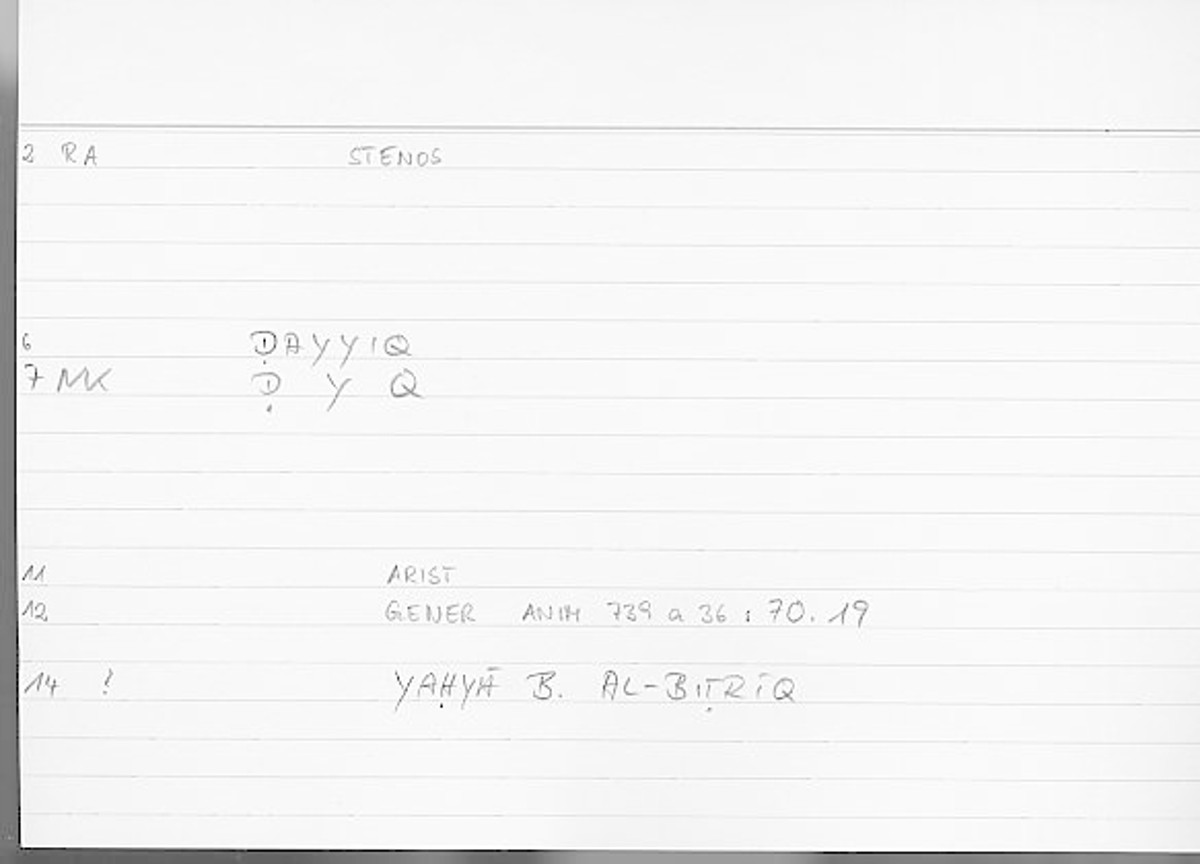 2 RA STENOS
6 ḌAYYIQ
7 MK Ḍ Y Q
11 ARIST
12 GENER ANIM 739 a 36 : 70.19
14 ? YAḤYĀ B. AL-BIṬRĪQ